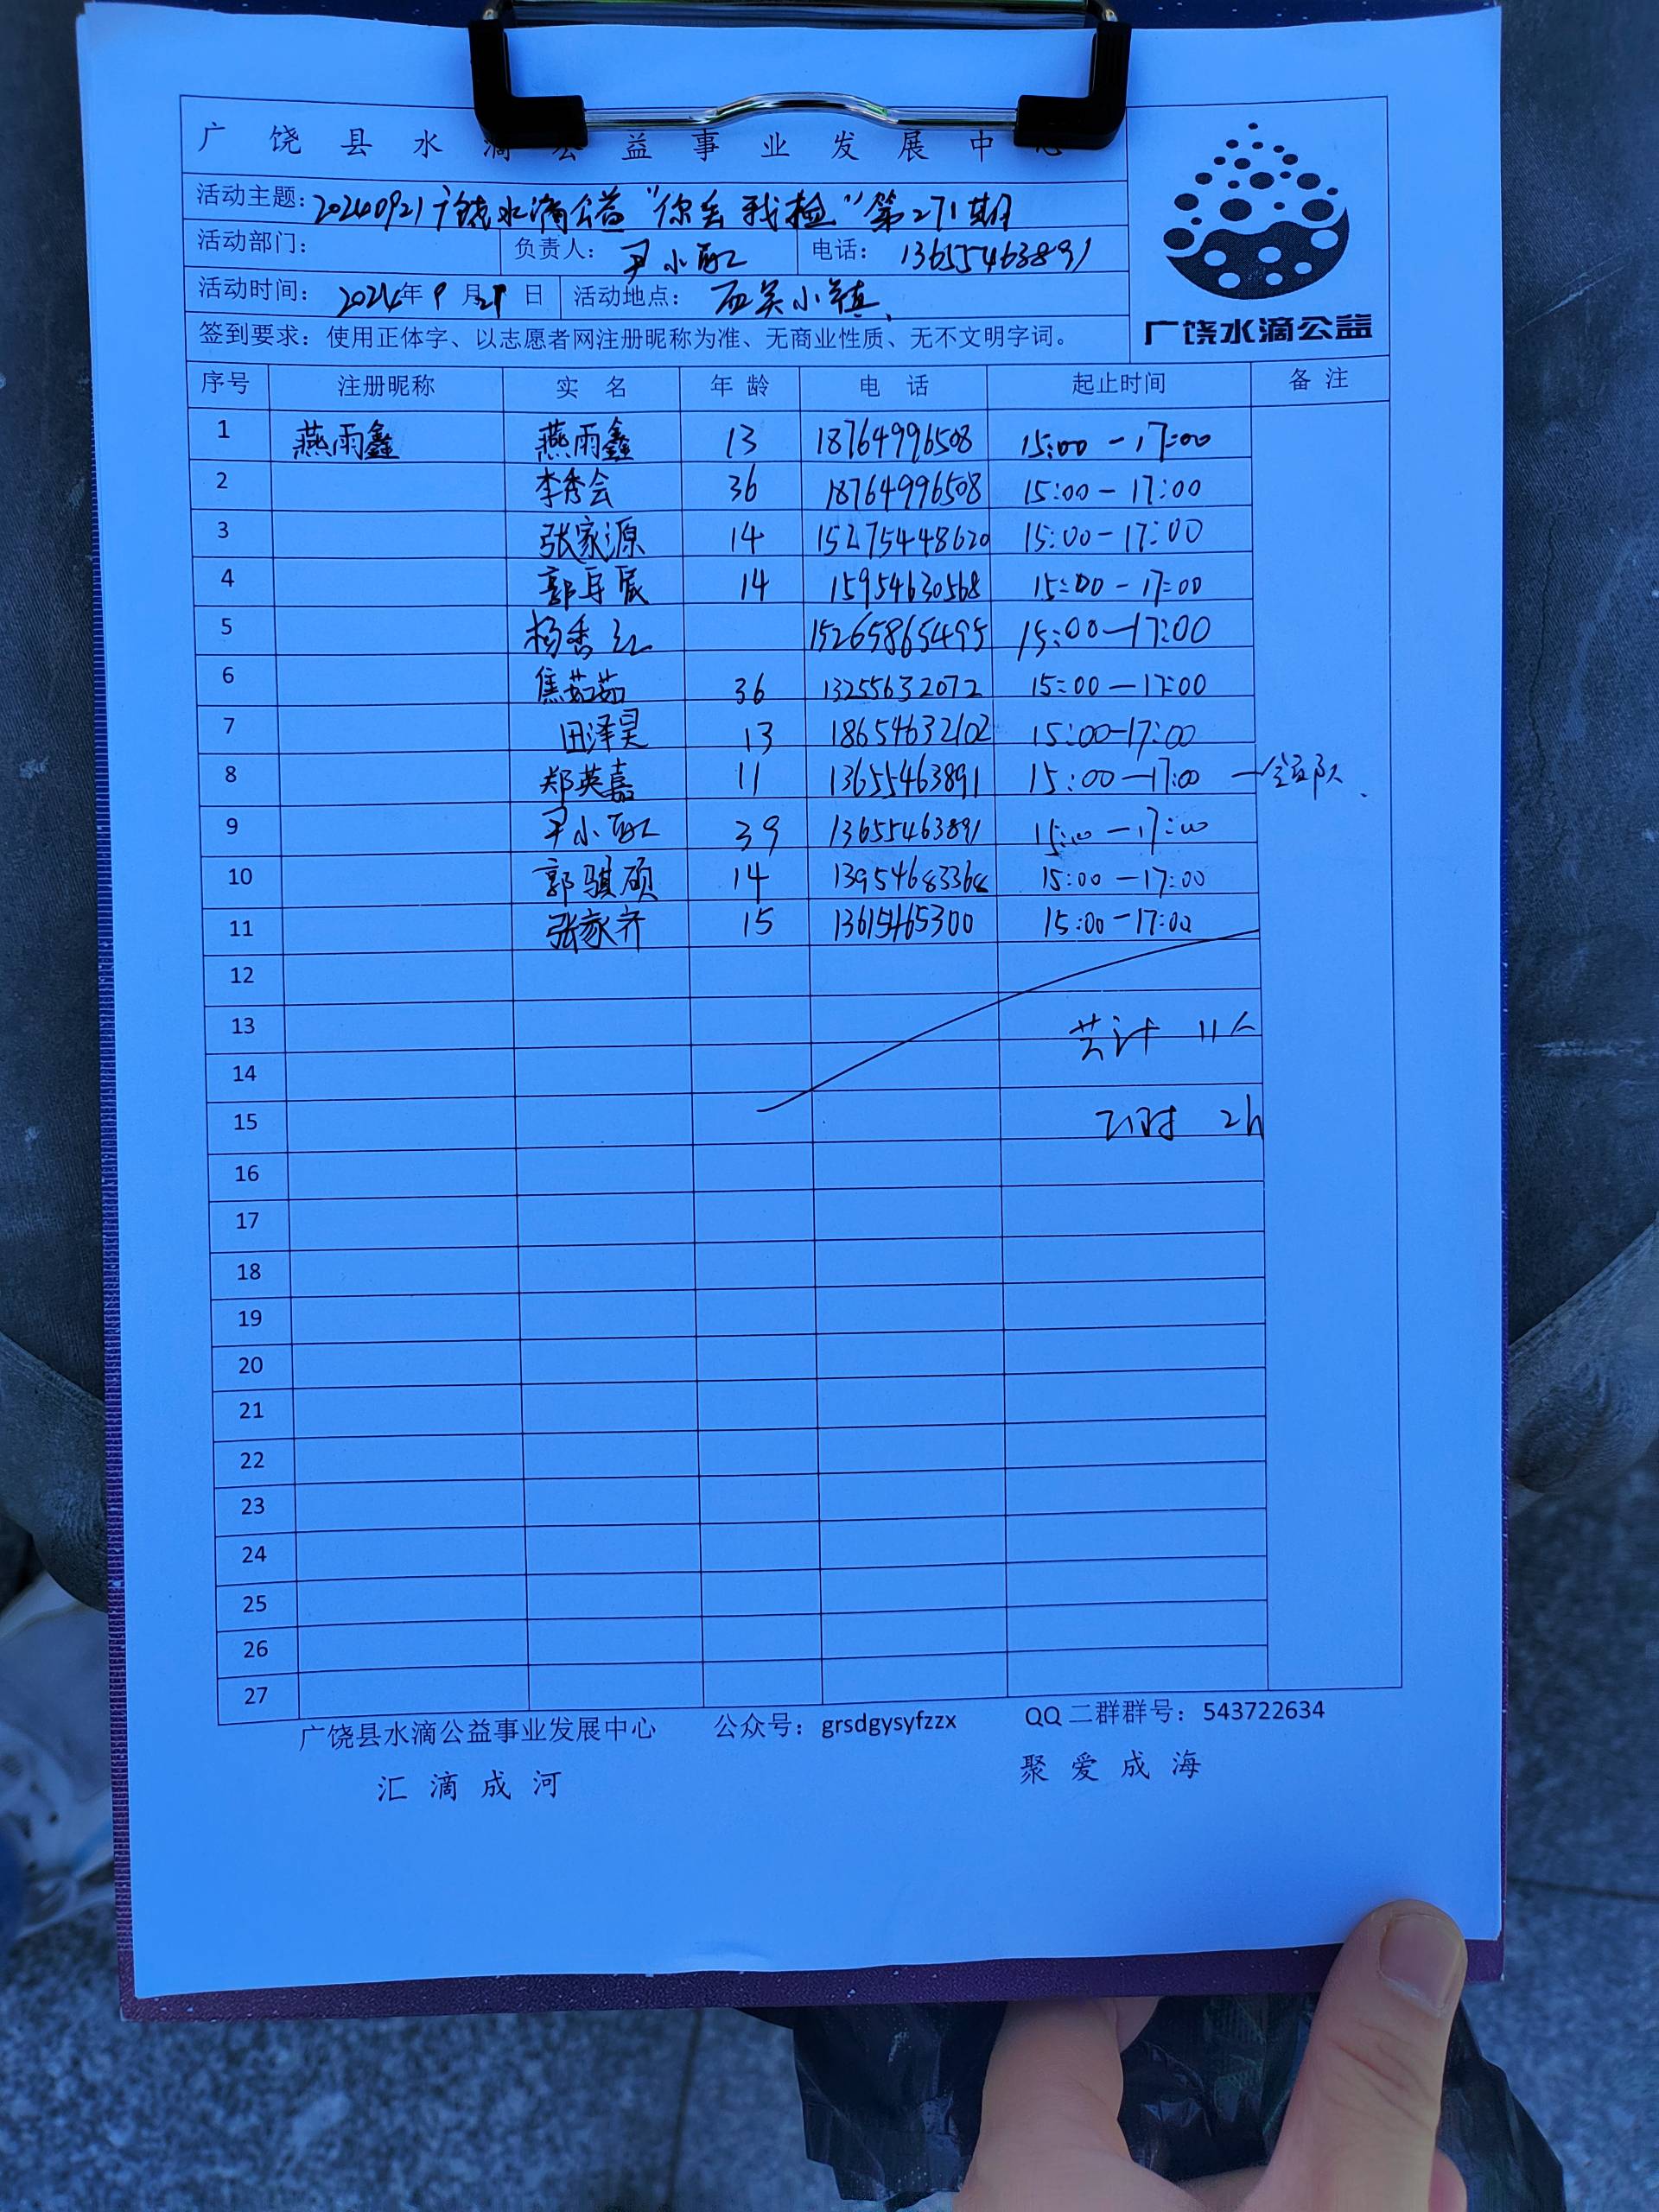 广饶县水滴公益事业发展中心
活动主题：20240921广饶水滴公益“你丢我捡”第271期
活动部门： 负责人：尹小 电话：13655463891
活动时间：2024年9月21日 活动地点：西关小镇
签到要求：使用正体字、以志愿者网注册昵称为准、无商业性质、无不文明字词。
广饶水滴公益
序号 注册昵称 实名 年龄 电话 起止时间 备注
1 燕雨鑫 燕雨鑫 13 18764996508 15:00-17:00
2 李秀会 36 18764996508 15:00-17:00
3 张家源 14 15275448620 15:00-17:00
4 郭 辰 14 15954630568 15:00-17:00
5 杨秀红 15265865495 15:00-17:00
6 焦茹茹 36 13255632072 15:00-17:00
7 田泽昊 13 18654632102 15:00-17:00
8 郑英嘉 11 13655463891 15:00-17:00
9 尹小 39 13655463891 15:00-17:00
10 郭骐硕 14 13954683368 15:00-17:00
11 张家齐 15 13615465300 15:00-17:00
12
13 共计 11人
14
15 工时 2h
16
17
18
19
20
21
22
23
24
25
26
27
广饶县水滴公益事业发展中心 公众号：grsdgysyfzzx QQ二群群号：543722634
汇滴成河 聚爱成海